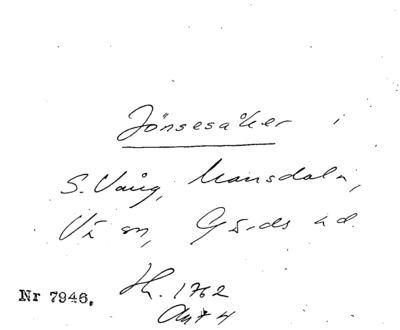 Jönsesåker i
S. Vång, Mansdala,
Vä sn, Gärds hd.
Nr 7946. H. 1762
Akt 4